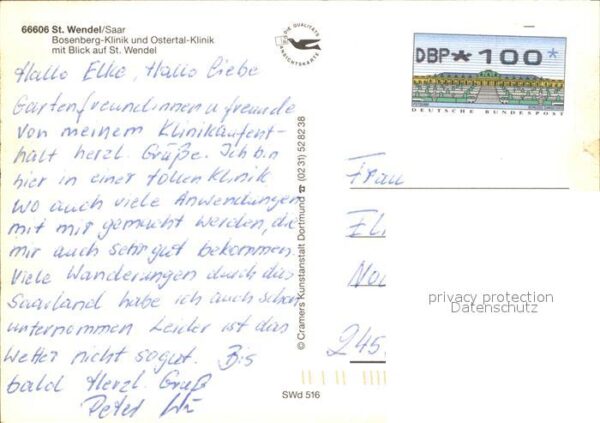 66606 St. Wendel/Saar
Bosenberg-Klinik und Ostertal-Klinik
mit Blick auf St. Wendel
DIE QUALITÄTS
ANSICHTSKARTE
DBP*100*
DEUTSCHE BUNDESPOST
Hallo Elke, Hallo liebe
Gartenfreundinnen u freunde
von meinem Klinikaufent-
halt herzl. Grüße. Ich bin
hier in einer tollen Klinik
wo auch viele Anwendungen
mit mir gemacht werden, die
mir auch sehr gut bekommen.
Viele Wanderungen durch das
Saarland habe ich auch schon
unternommen Leider ist das
Wetter nicht so gut. Bis
bald Herzl. Gruß
Peter
© Cramers Kunstanstalt Dortmund ☎ (0231) 528238
SWd 516
Frau
245
privacy protection
Datenschutz